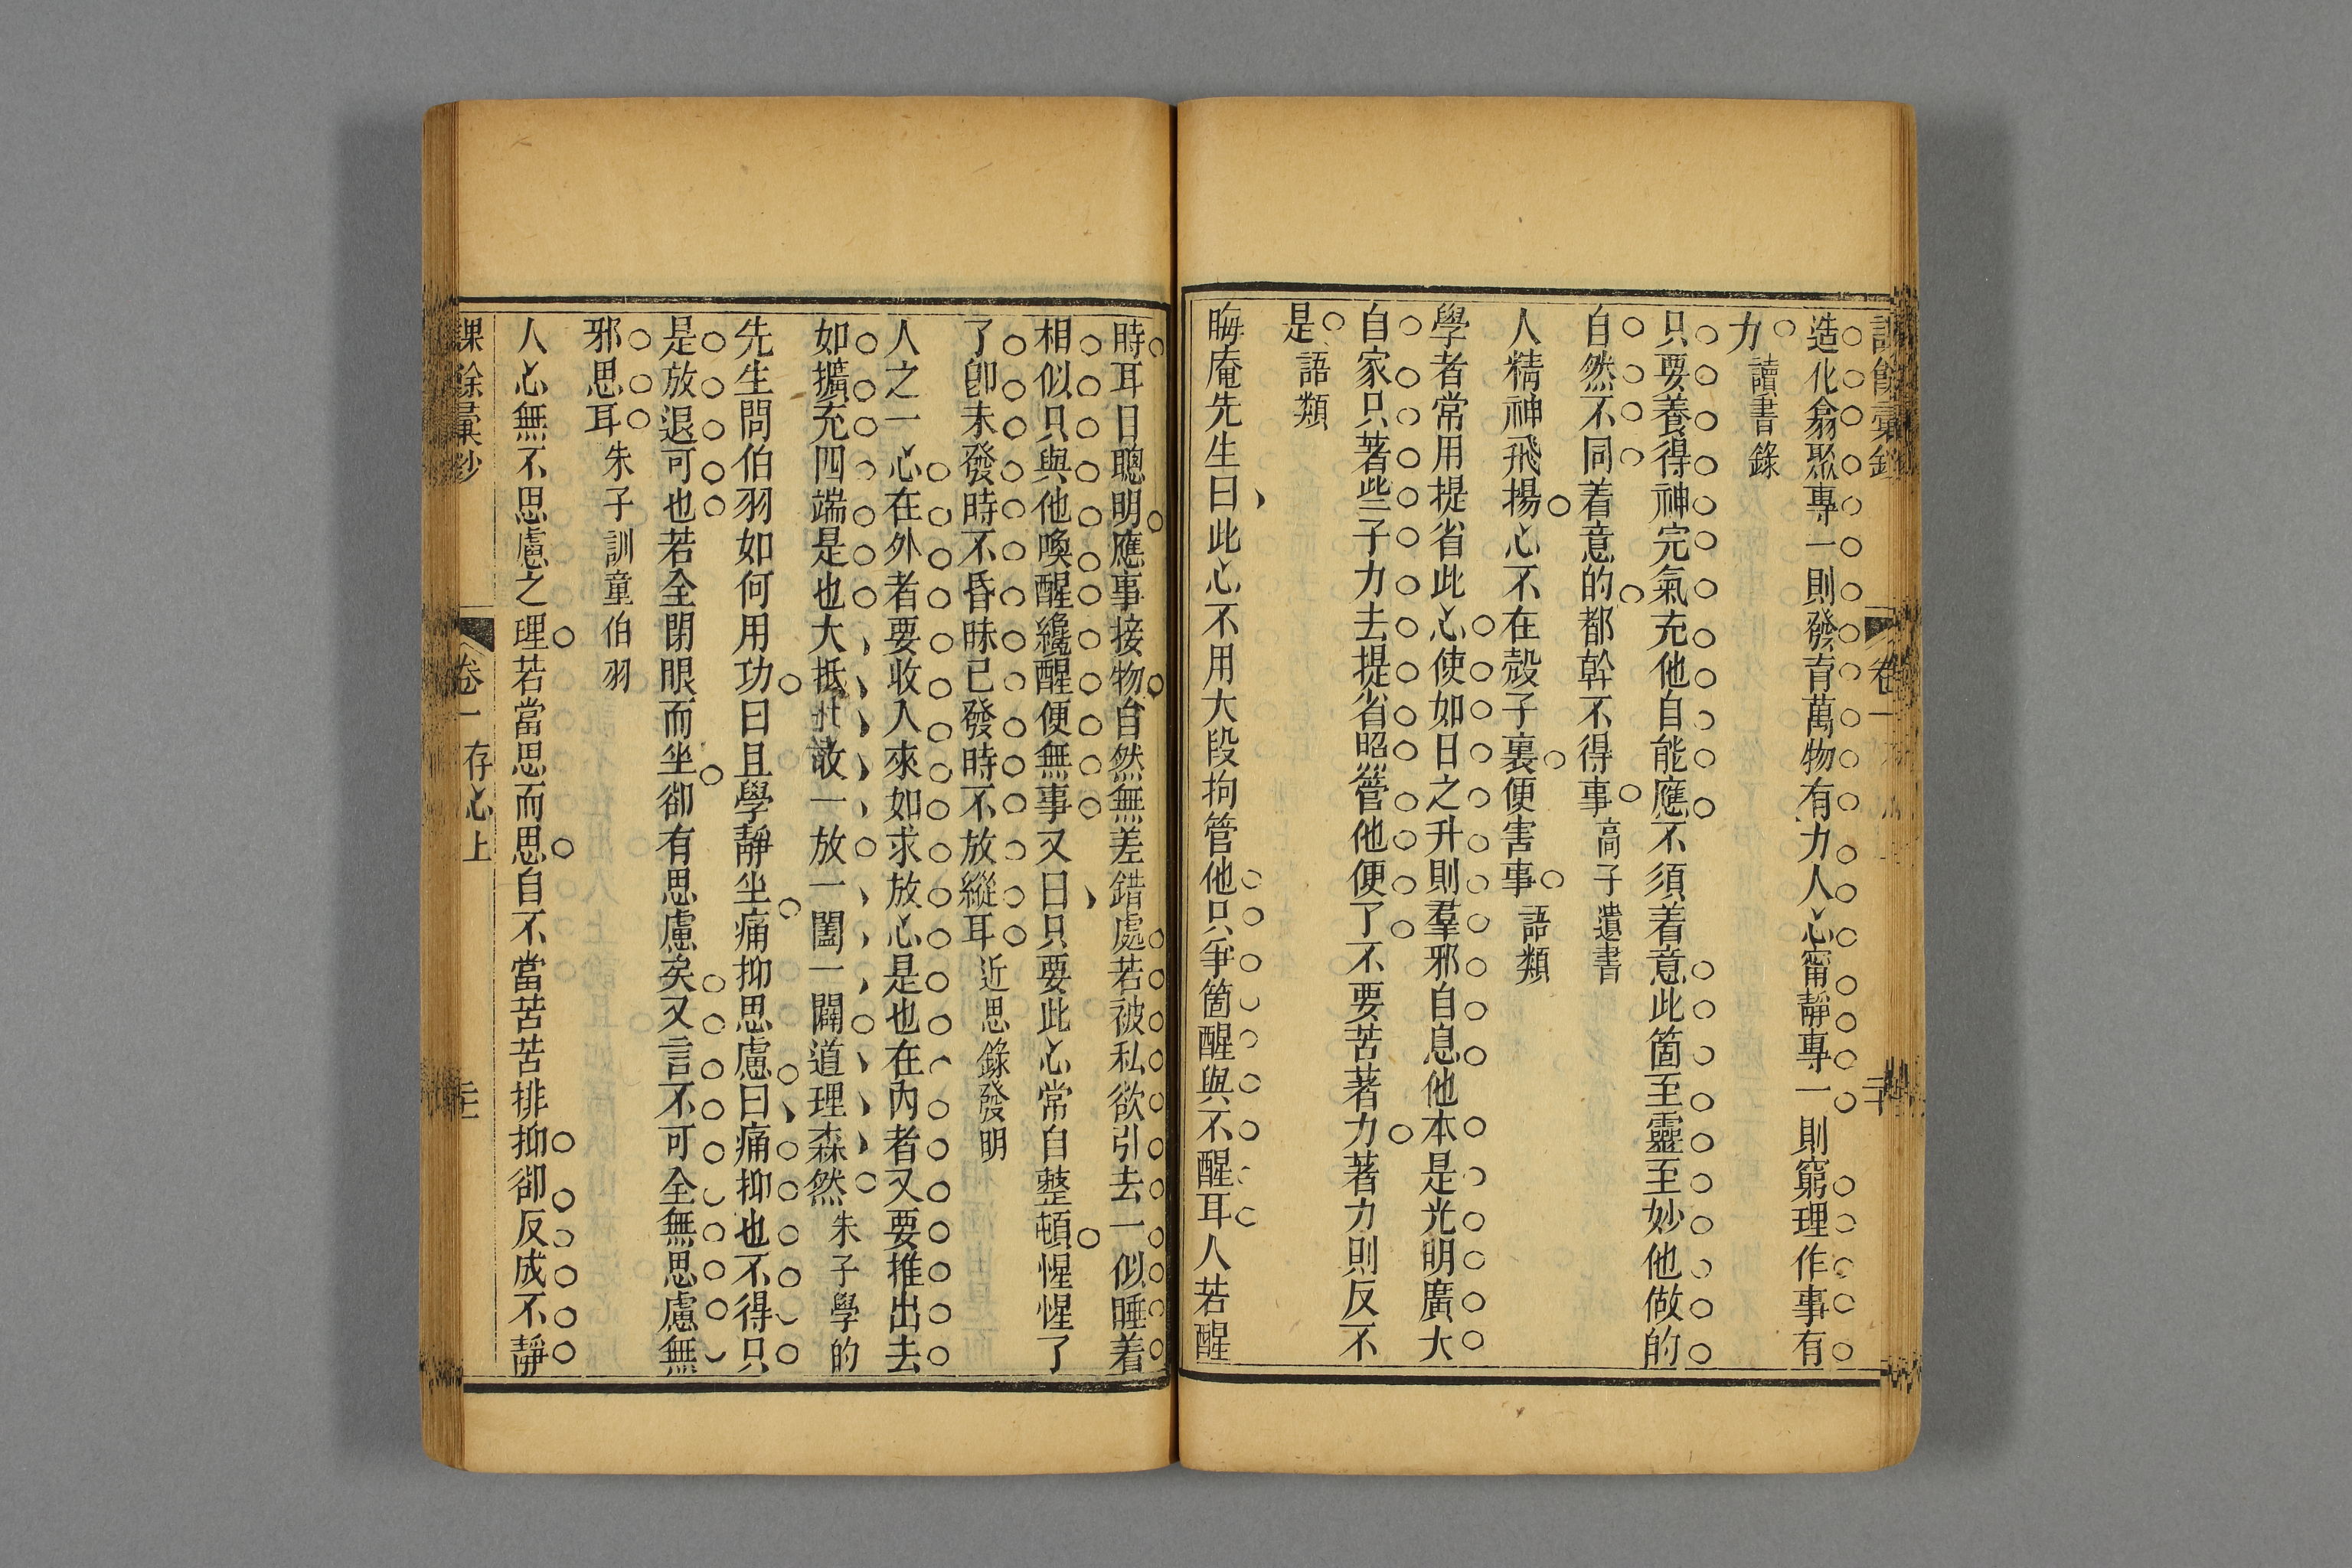 課餘彙鈔
卷一
二十
造化翕聚專一則發育萬物有力人心甯靜專一則窮理作事有
力讀書錄
只要養得神完氣充他自能應不須着意此箇至靈至妙他做的
自然不同着意的都幹不得事高子遺書
人精神飛揚心不在殼子裏便害事語類
學者常用提省此心使如日之升則羣邪自息他本是光明廣大
自家只著些子力去提省照管他便了不要苦著力著力則反不
是語類
晦庵先生曰此心不用大段拘管他只爭箇醒與不醒耳人若醒
時耳目聰明應事接物自然無差錯處若被私欲引去一似睡着
相似只與他喚醒纔醒便無事又曰只要此心常自整頓惺惺了
了卽未發時不昏昧已發時不放縱耳近思錄發明
人之一心在外者要收入來如求放心是也在內者又要推出去
如擴充四端是也大抵一收一放一闔一闢道理森然朱子學的
先生問伯羽如何用功曰且學靜坐痛抑思慮曰痛抑也不得只
是放退可也若全閉眼而坐卻有思慮矣又言不可全無思慮無
邪思耳朱子訓童伯羽
人心無不思慮之理若當思而思自不當苦苦排抑卻反成不靜
課餘彙鈔
卷一存心上